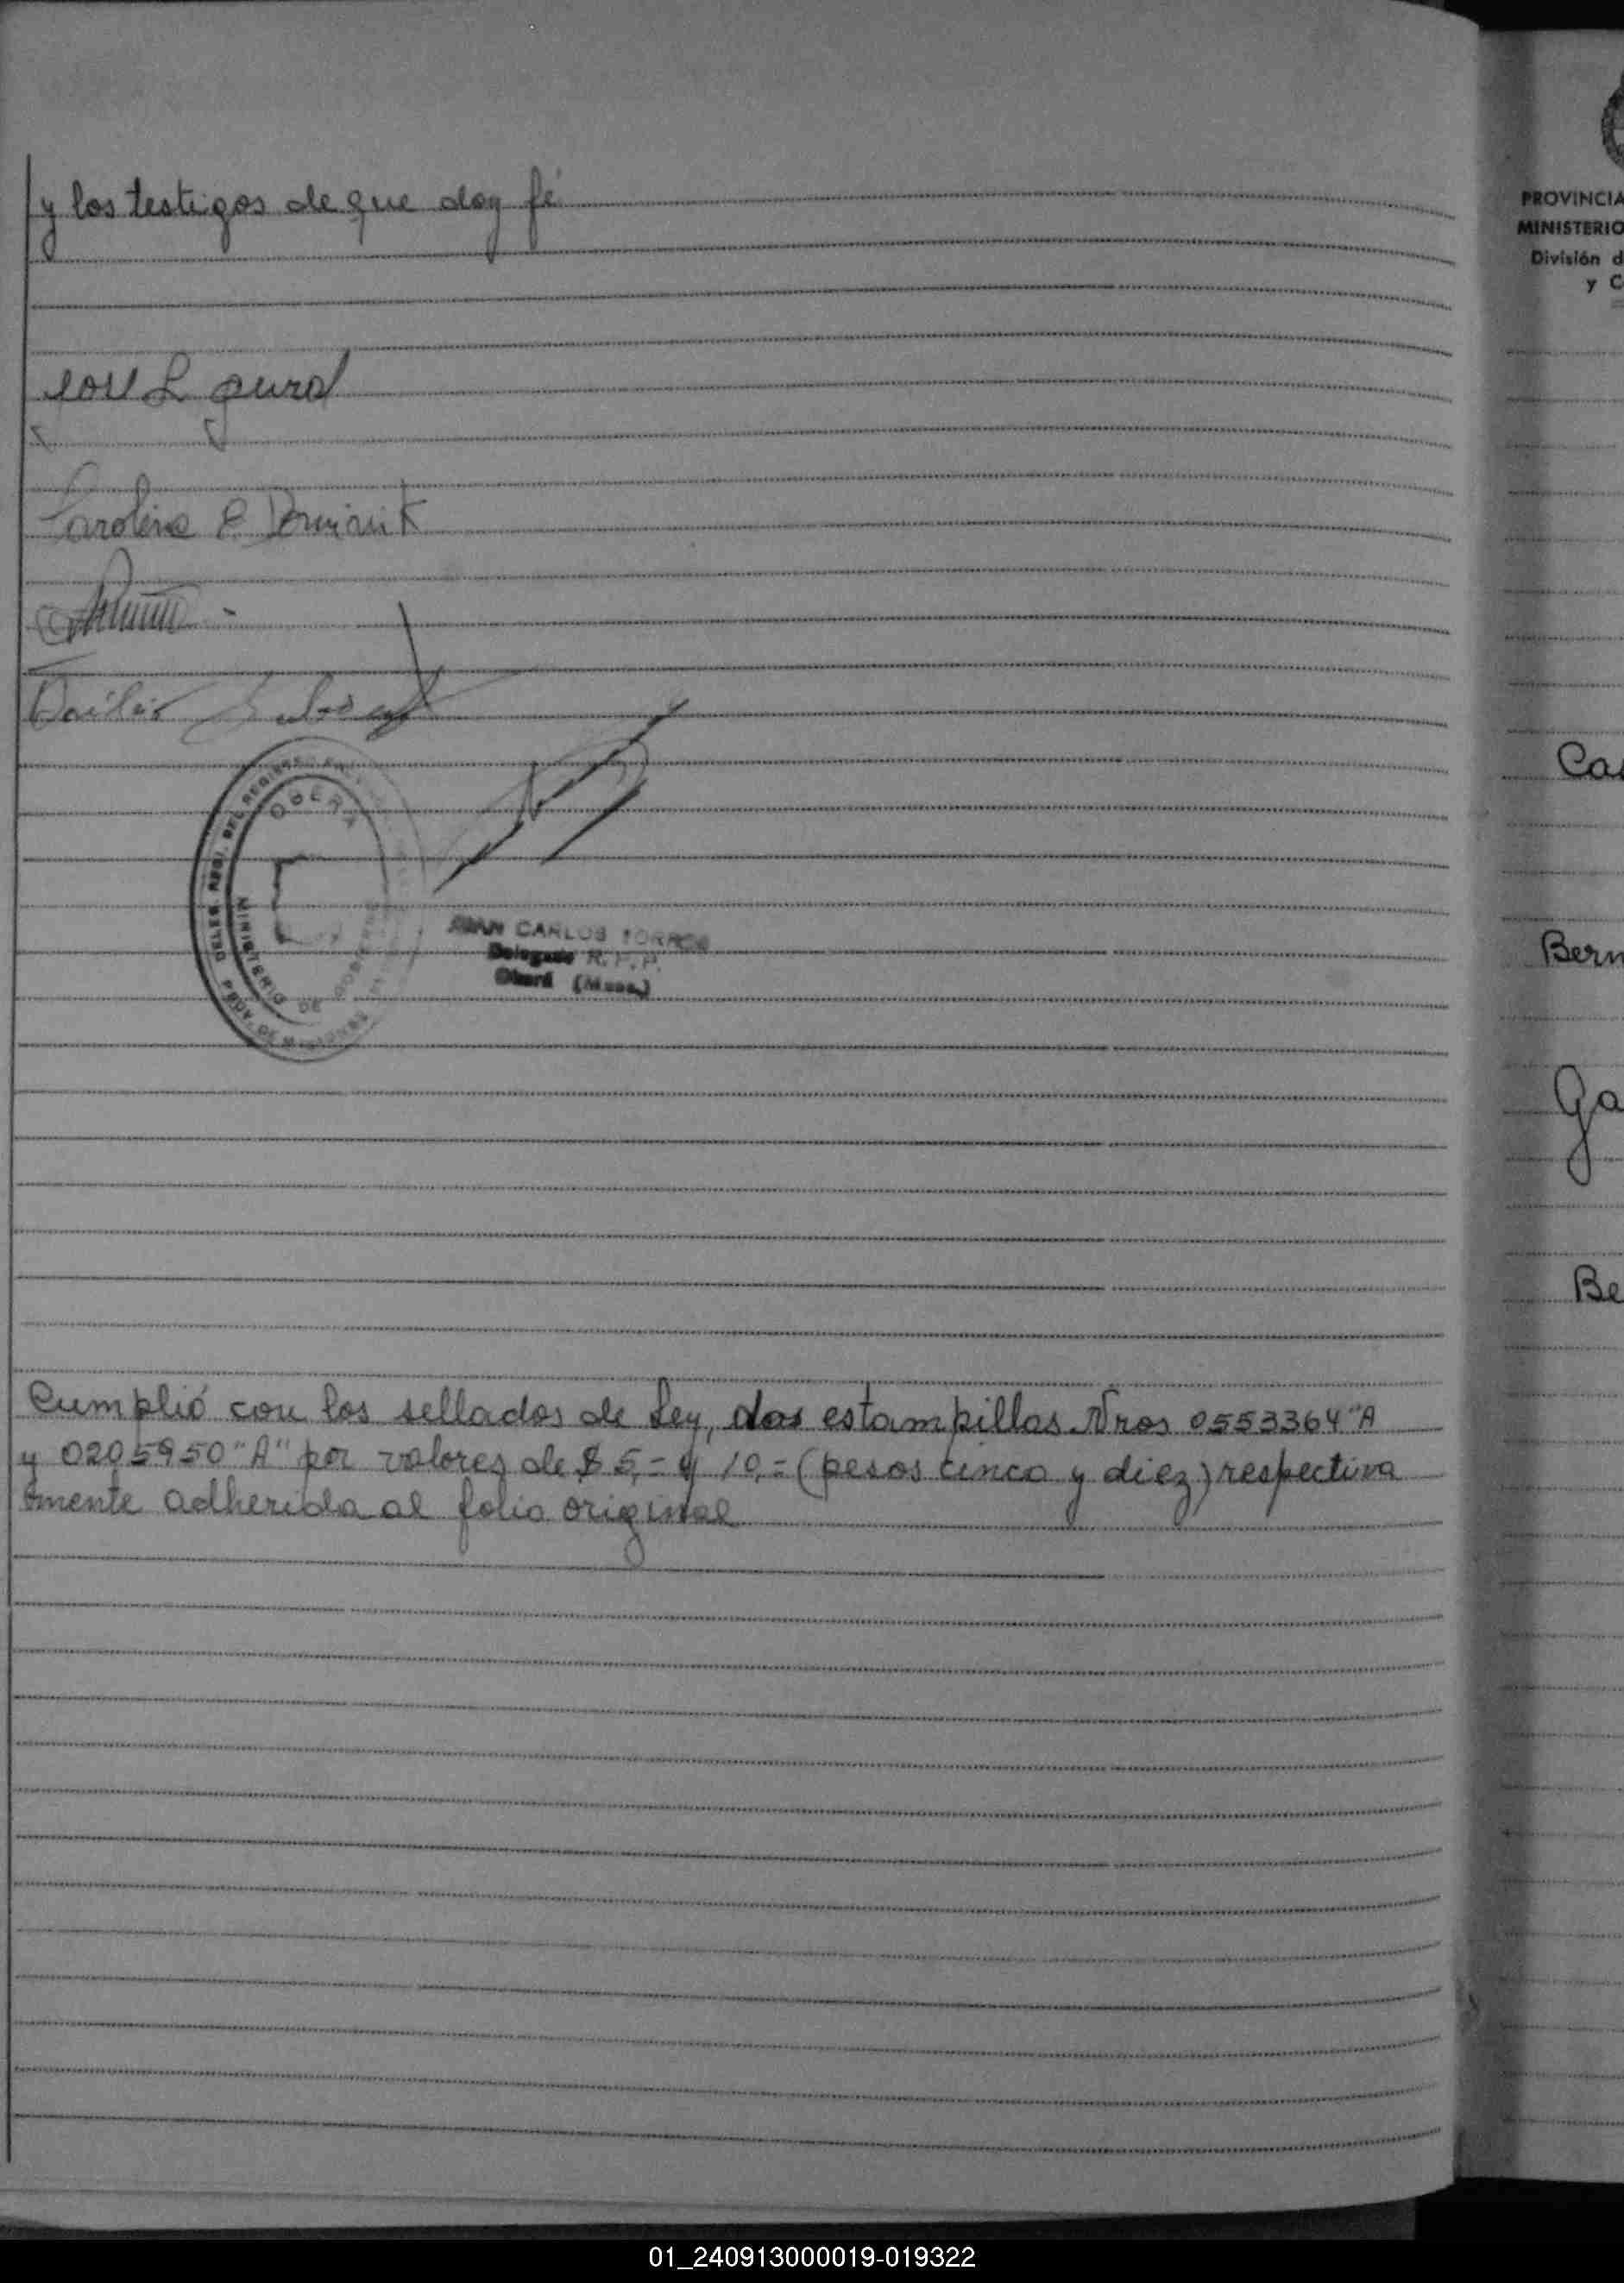 y los testigos de que doy fé
Carolina
JUAN CARLOS TORRES
Delegado R. P. P.
Oberá (Mnes.)
DELEG. REGI. DEL REGISTRO
OBERA
MINISTERIO DE GOBIERNO
PROV. DE MISIONES
Cumplió con los sellados de Ley, dos estampillas Nros 0553364 "A
y 0205950 "A" por valores de $ 5,= y 10,= (pesos cinco y diez) respectiva
mente adherida al folio original
PROVINCIA
MINISTERIO
División d
y C
Cas
Bern
Ga
Be
01_240913000019-019322